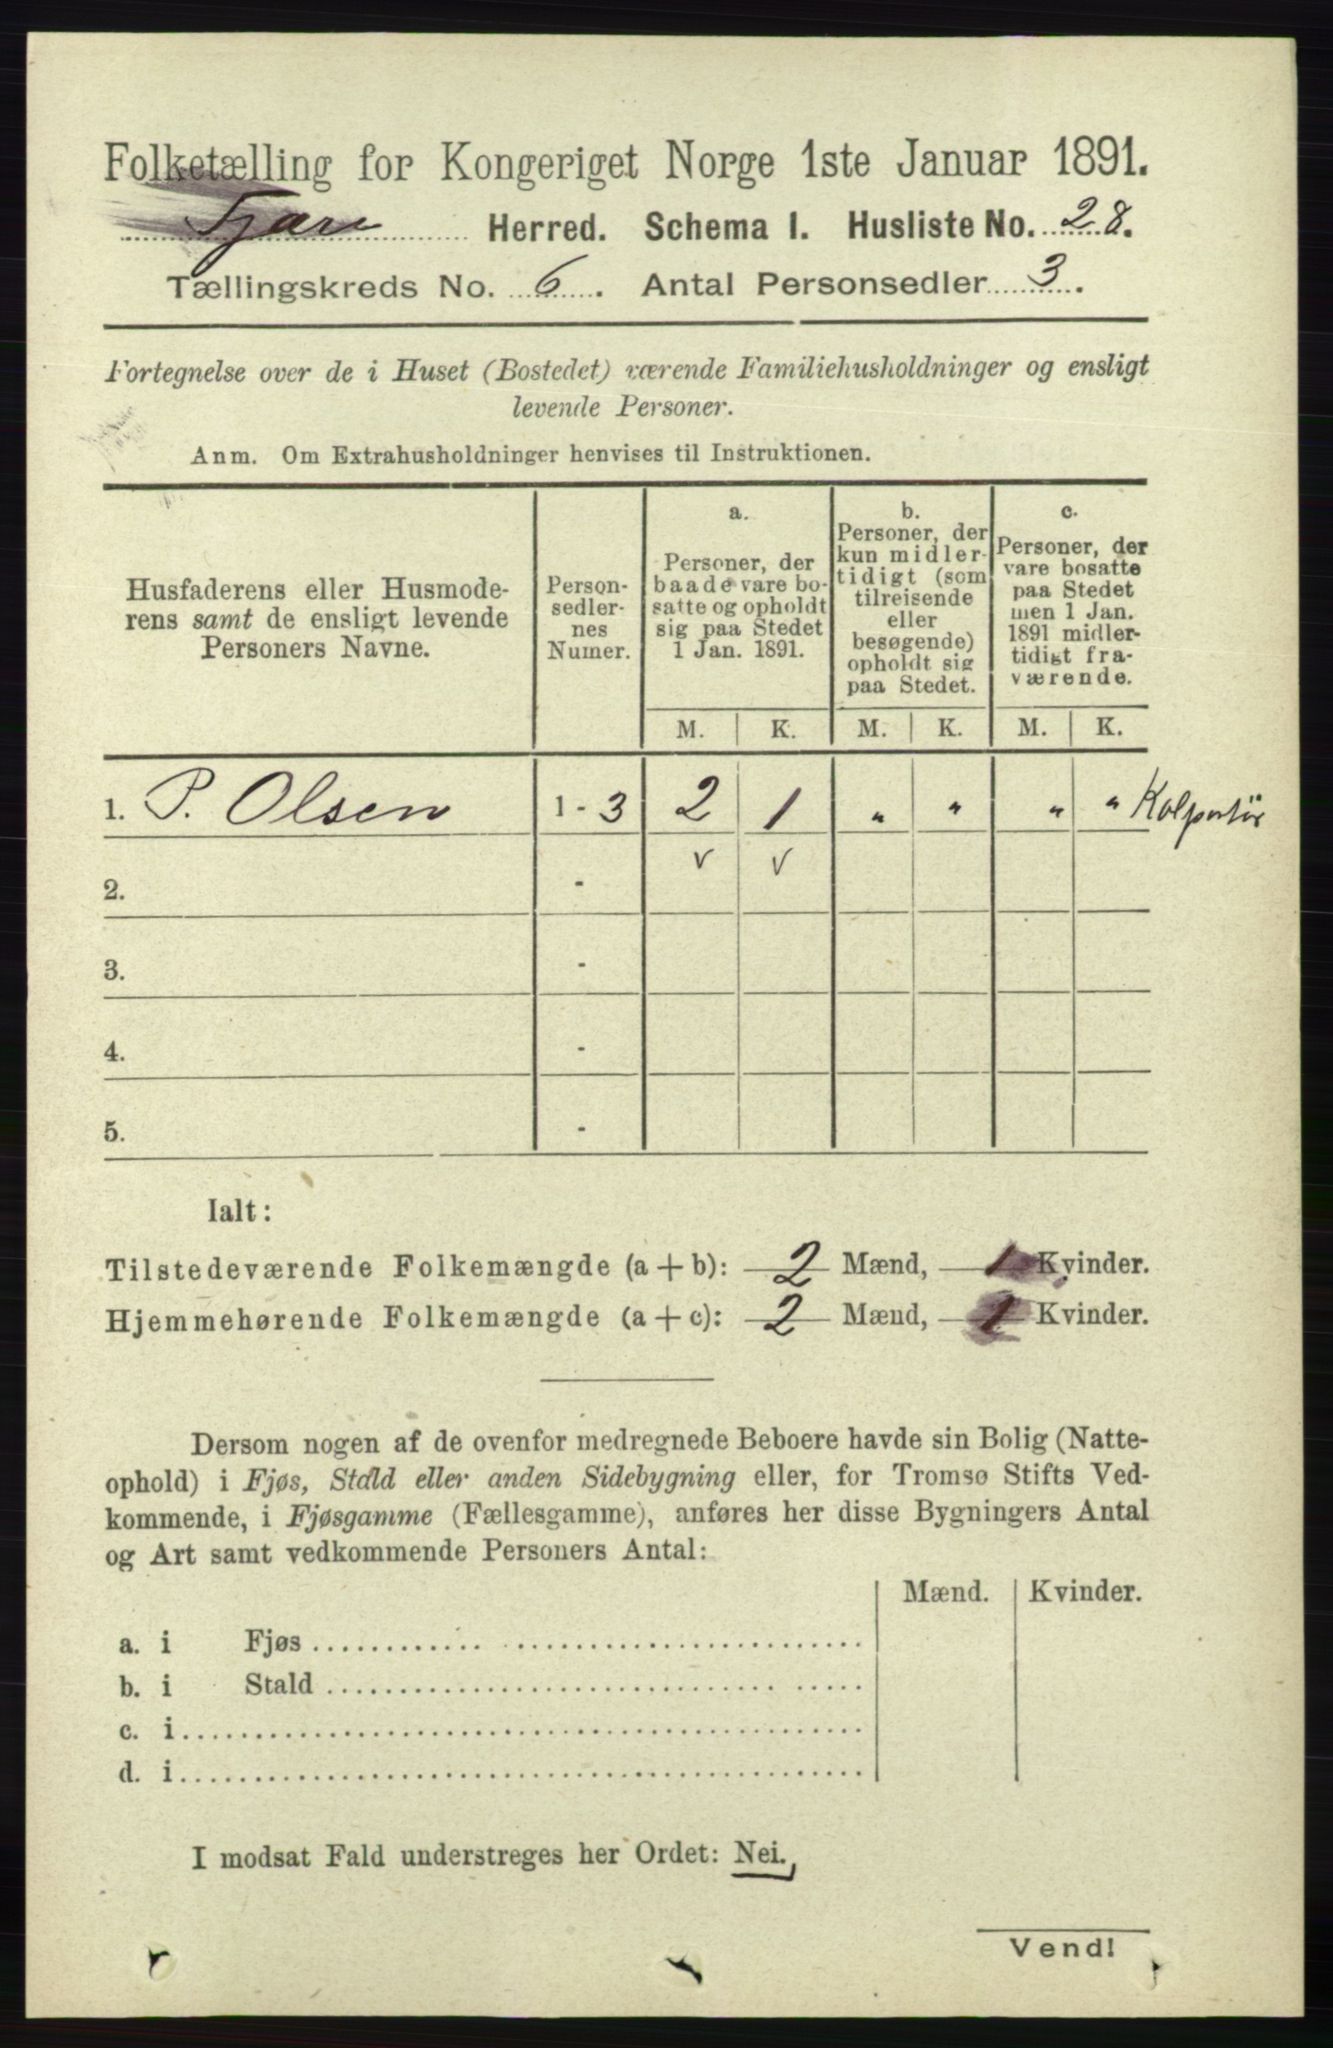 Folketælling for Kongeriget Norge 1ste Januar 1891.
Fjære Herred. Schema 1. Husliste No. 28.
Tællingskreds No. 6. Antal Personsedler 3.
Fortegnelse over de i Huset (Bostedet) værende Familiehusholdninger og ensligt
levende Personer.
Anm. Om Extrahusholdninger henvises til Instruktionen.
Husfaderens eller Husmode-
rens samt de ensligt levende
Personers Navne.
Person-
sedler-
nes
Numer.
a.
Personer, der
baade vare bo-
satte og opholdt
sig paa Stedet
1 Jan. 1891.
b.
Personer, der
kun midler-
tidigt (som
tilreisende
eller
besøgende)
opholdt sig
paa Stedet.
c.
Personer, der
vare bosatte
paa Stedet
men 1 Jan.
1891 midler-
tidigt fra-
værende.
M. K. M. K. M. K.
1. P. Olsen 1 - 3 2 1 " " " " Kolportör
2. - v v
3. -
4. -
5. -
Ialt:
Tilstedeværende Folkemængde (a + b): 2 Mænd, 1 Kvinder.
Hjemmehørende Folkemængde (a + c): 2 Mænd, 1 Kvinder.
Dersom nogen af de ovenfor medregnede Beboere havde sin Bolig (Natte-
ophold) i Fjøs, Stald eller anden Sidebygning eller, for Tromsø Stifts Ved-
kommende, i Fjøsgamme (Fællesgamme), anføres her disse Bygningers Antal
og Art samt vedkommende Personers Antal:
Mænd. Kvinder.
a. i Fjøs
b. i Stald
c. i
d. i
I modsat Fald understreges her Ordet: Nei.
Vend!